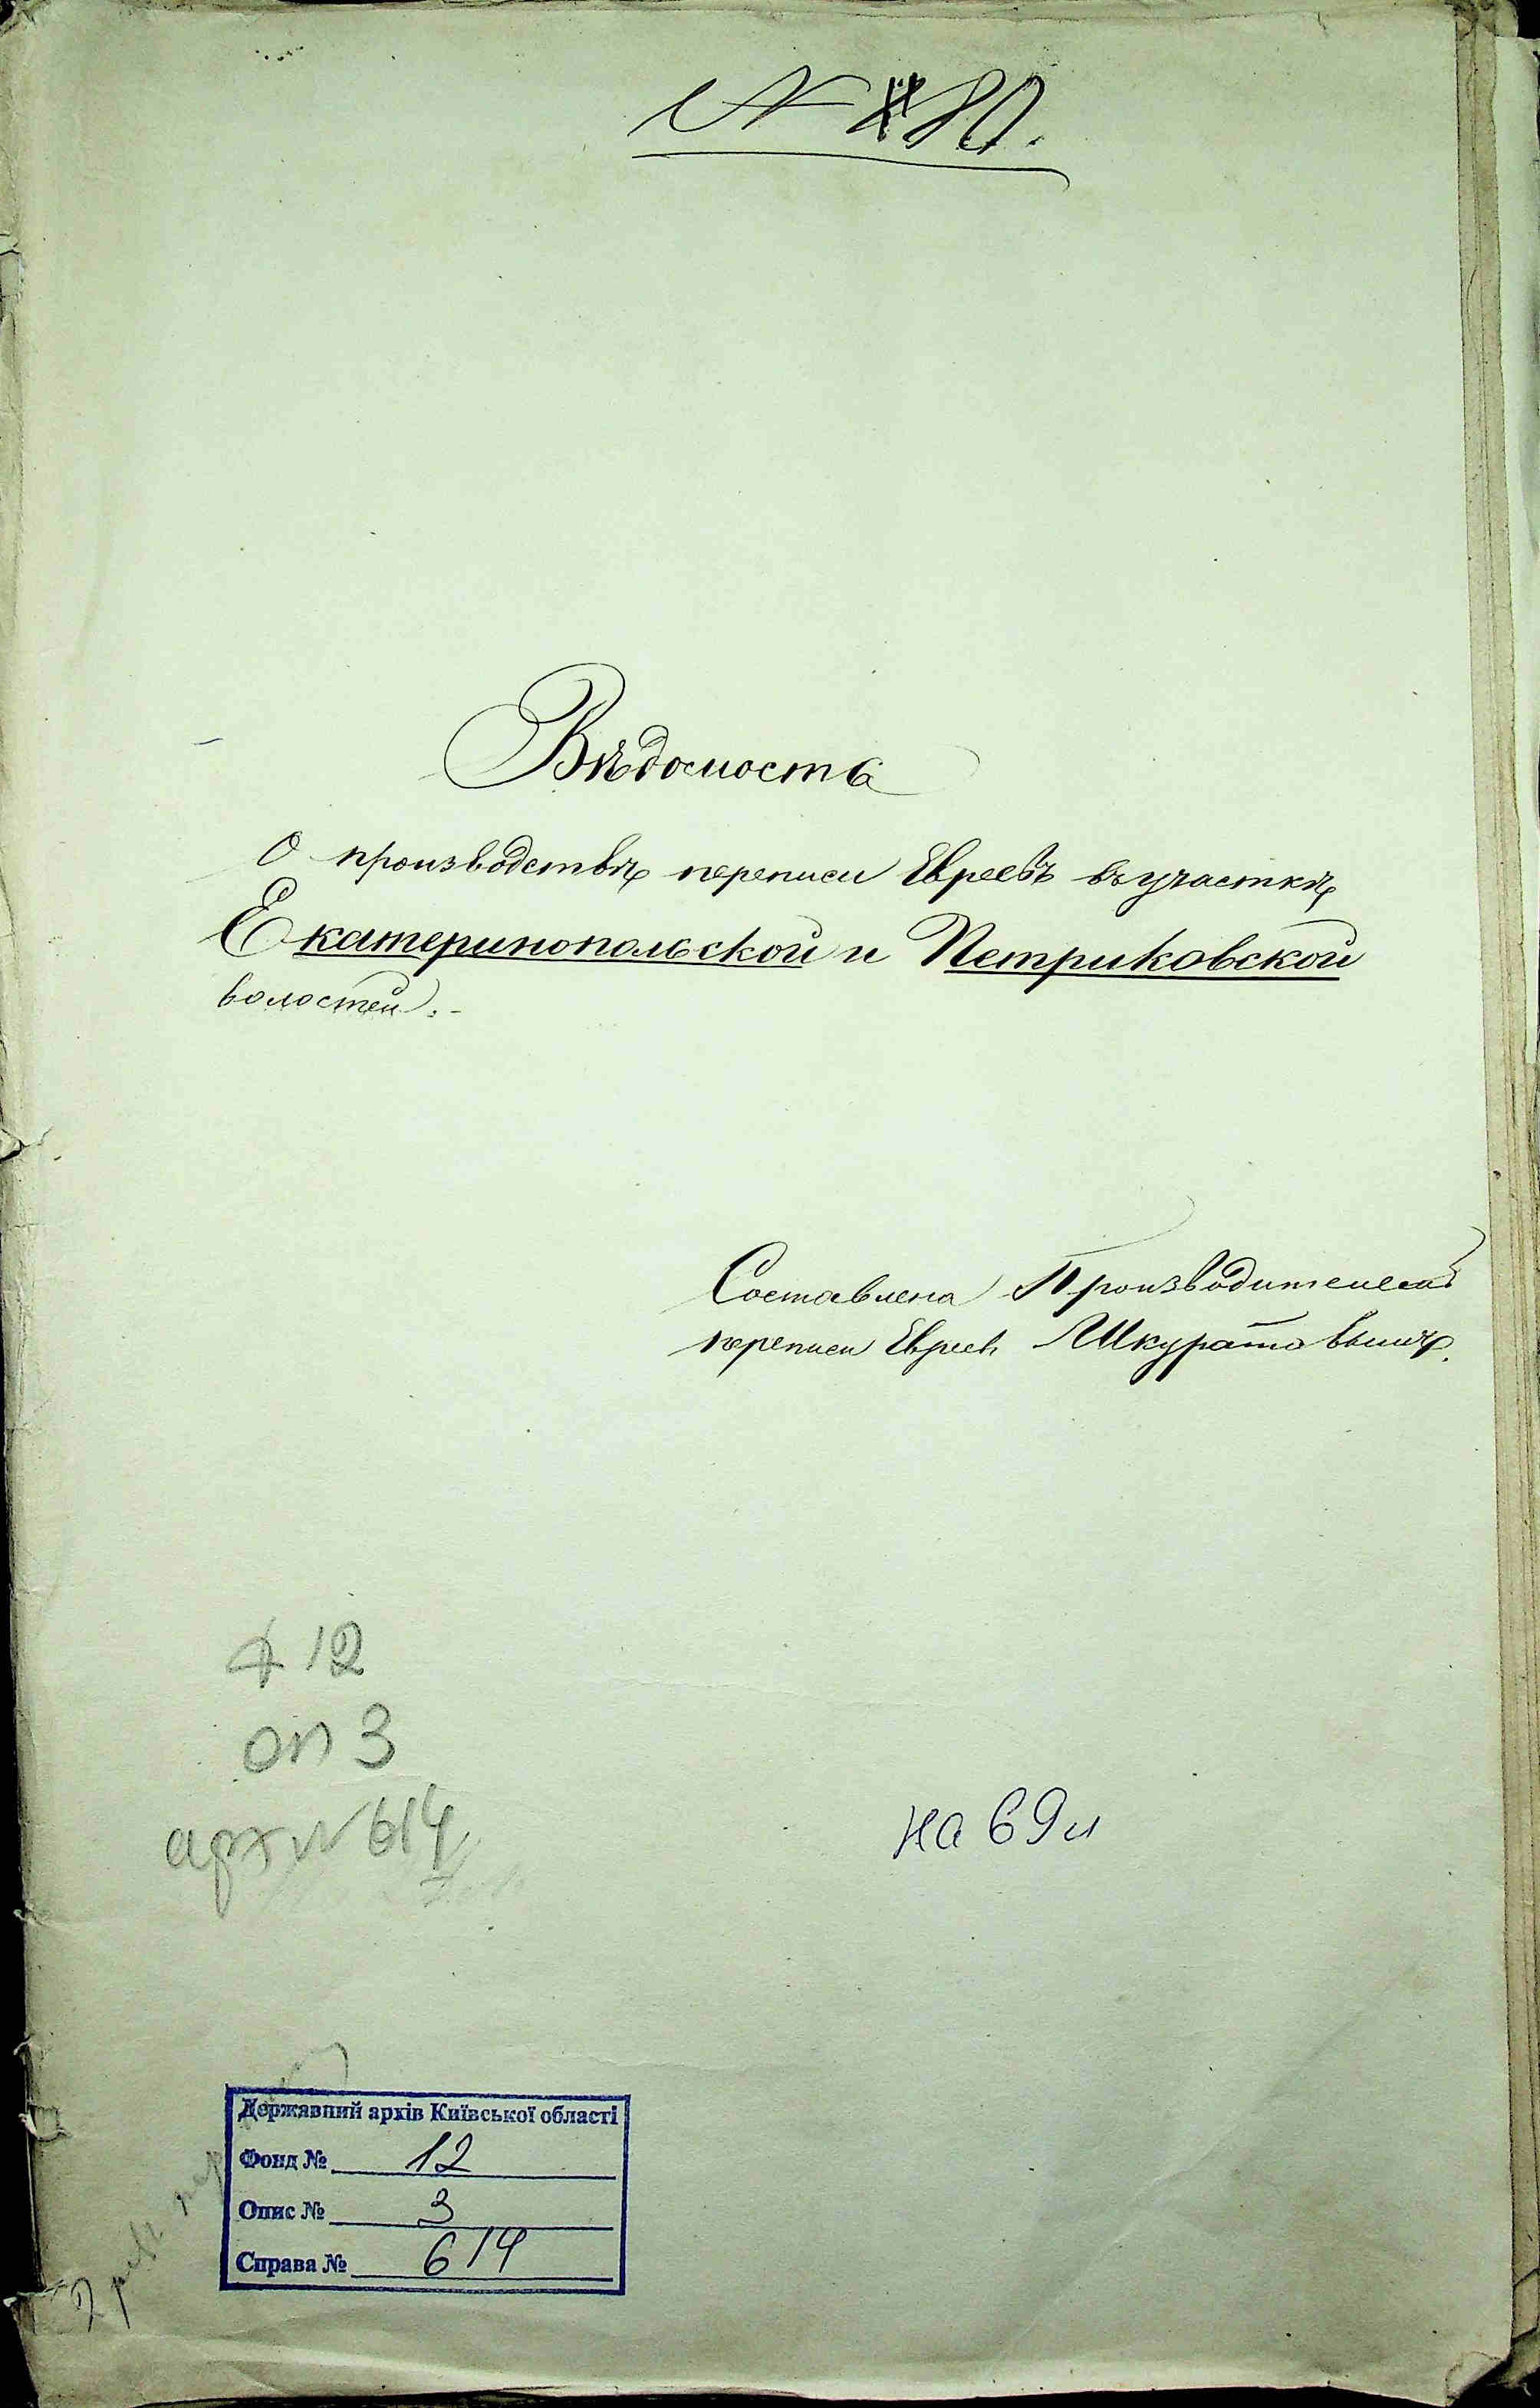 № 80.
Вѣдомость
О производствѣ переписи Евреевъ въ участкѣ
Екатеринопольской и Петриковской
волостей.-
Составлена Производителемъ
переписи Евреевъ Шкуратовымъ.
ф 12
оп 3
арх № 614
на 69 л
Державний архів Київської області
Фонд № 12
Опис № 3
Справа № 614